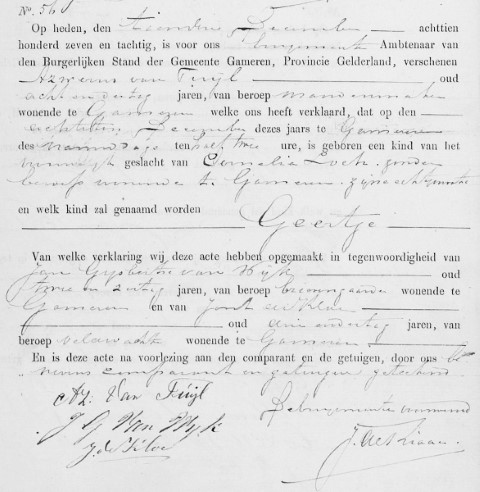 No. 56
Op heden, den December achttien
honderd zeven en tachtig, is voor ons burgemeester Ambtenaar van
den Burgerlijken Stand der Gemeente Gameren, Provincie Gelderland, verschenen
van Tuijl oud
acht en dertig jaren, van beroep mandenmaker
wonende te Gameren welke ons heeft verklaard, dat op den
December dezes jaars te Gameren
des namiddags ten half twee ure, is geboren een kind van het
vrouwelijk geslacht van Cornelia zonder
beroep wonende te Gameren zijne echtgenoote
en welk kind zal genaamd worden
Geertje
Van welke verklaring wij deze acte hebben opgemaakt in tegenwoordigheid van
Jan Gijsbertus van Wijk oud
twee en jaren, van beroep wonende te
Gameren en van
oud drie en dertig jaren, van
beroep veldwachter wonende te Gameren
En is deze acte na voorlezing aan den comparant en de getuigen, door ons be-
nevens comparant en getuigen geteekend.
Az. Van Tuijl
De burgemeester voornoemd
J G Van Wijk